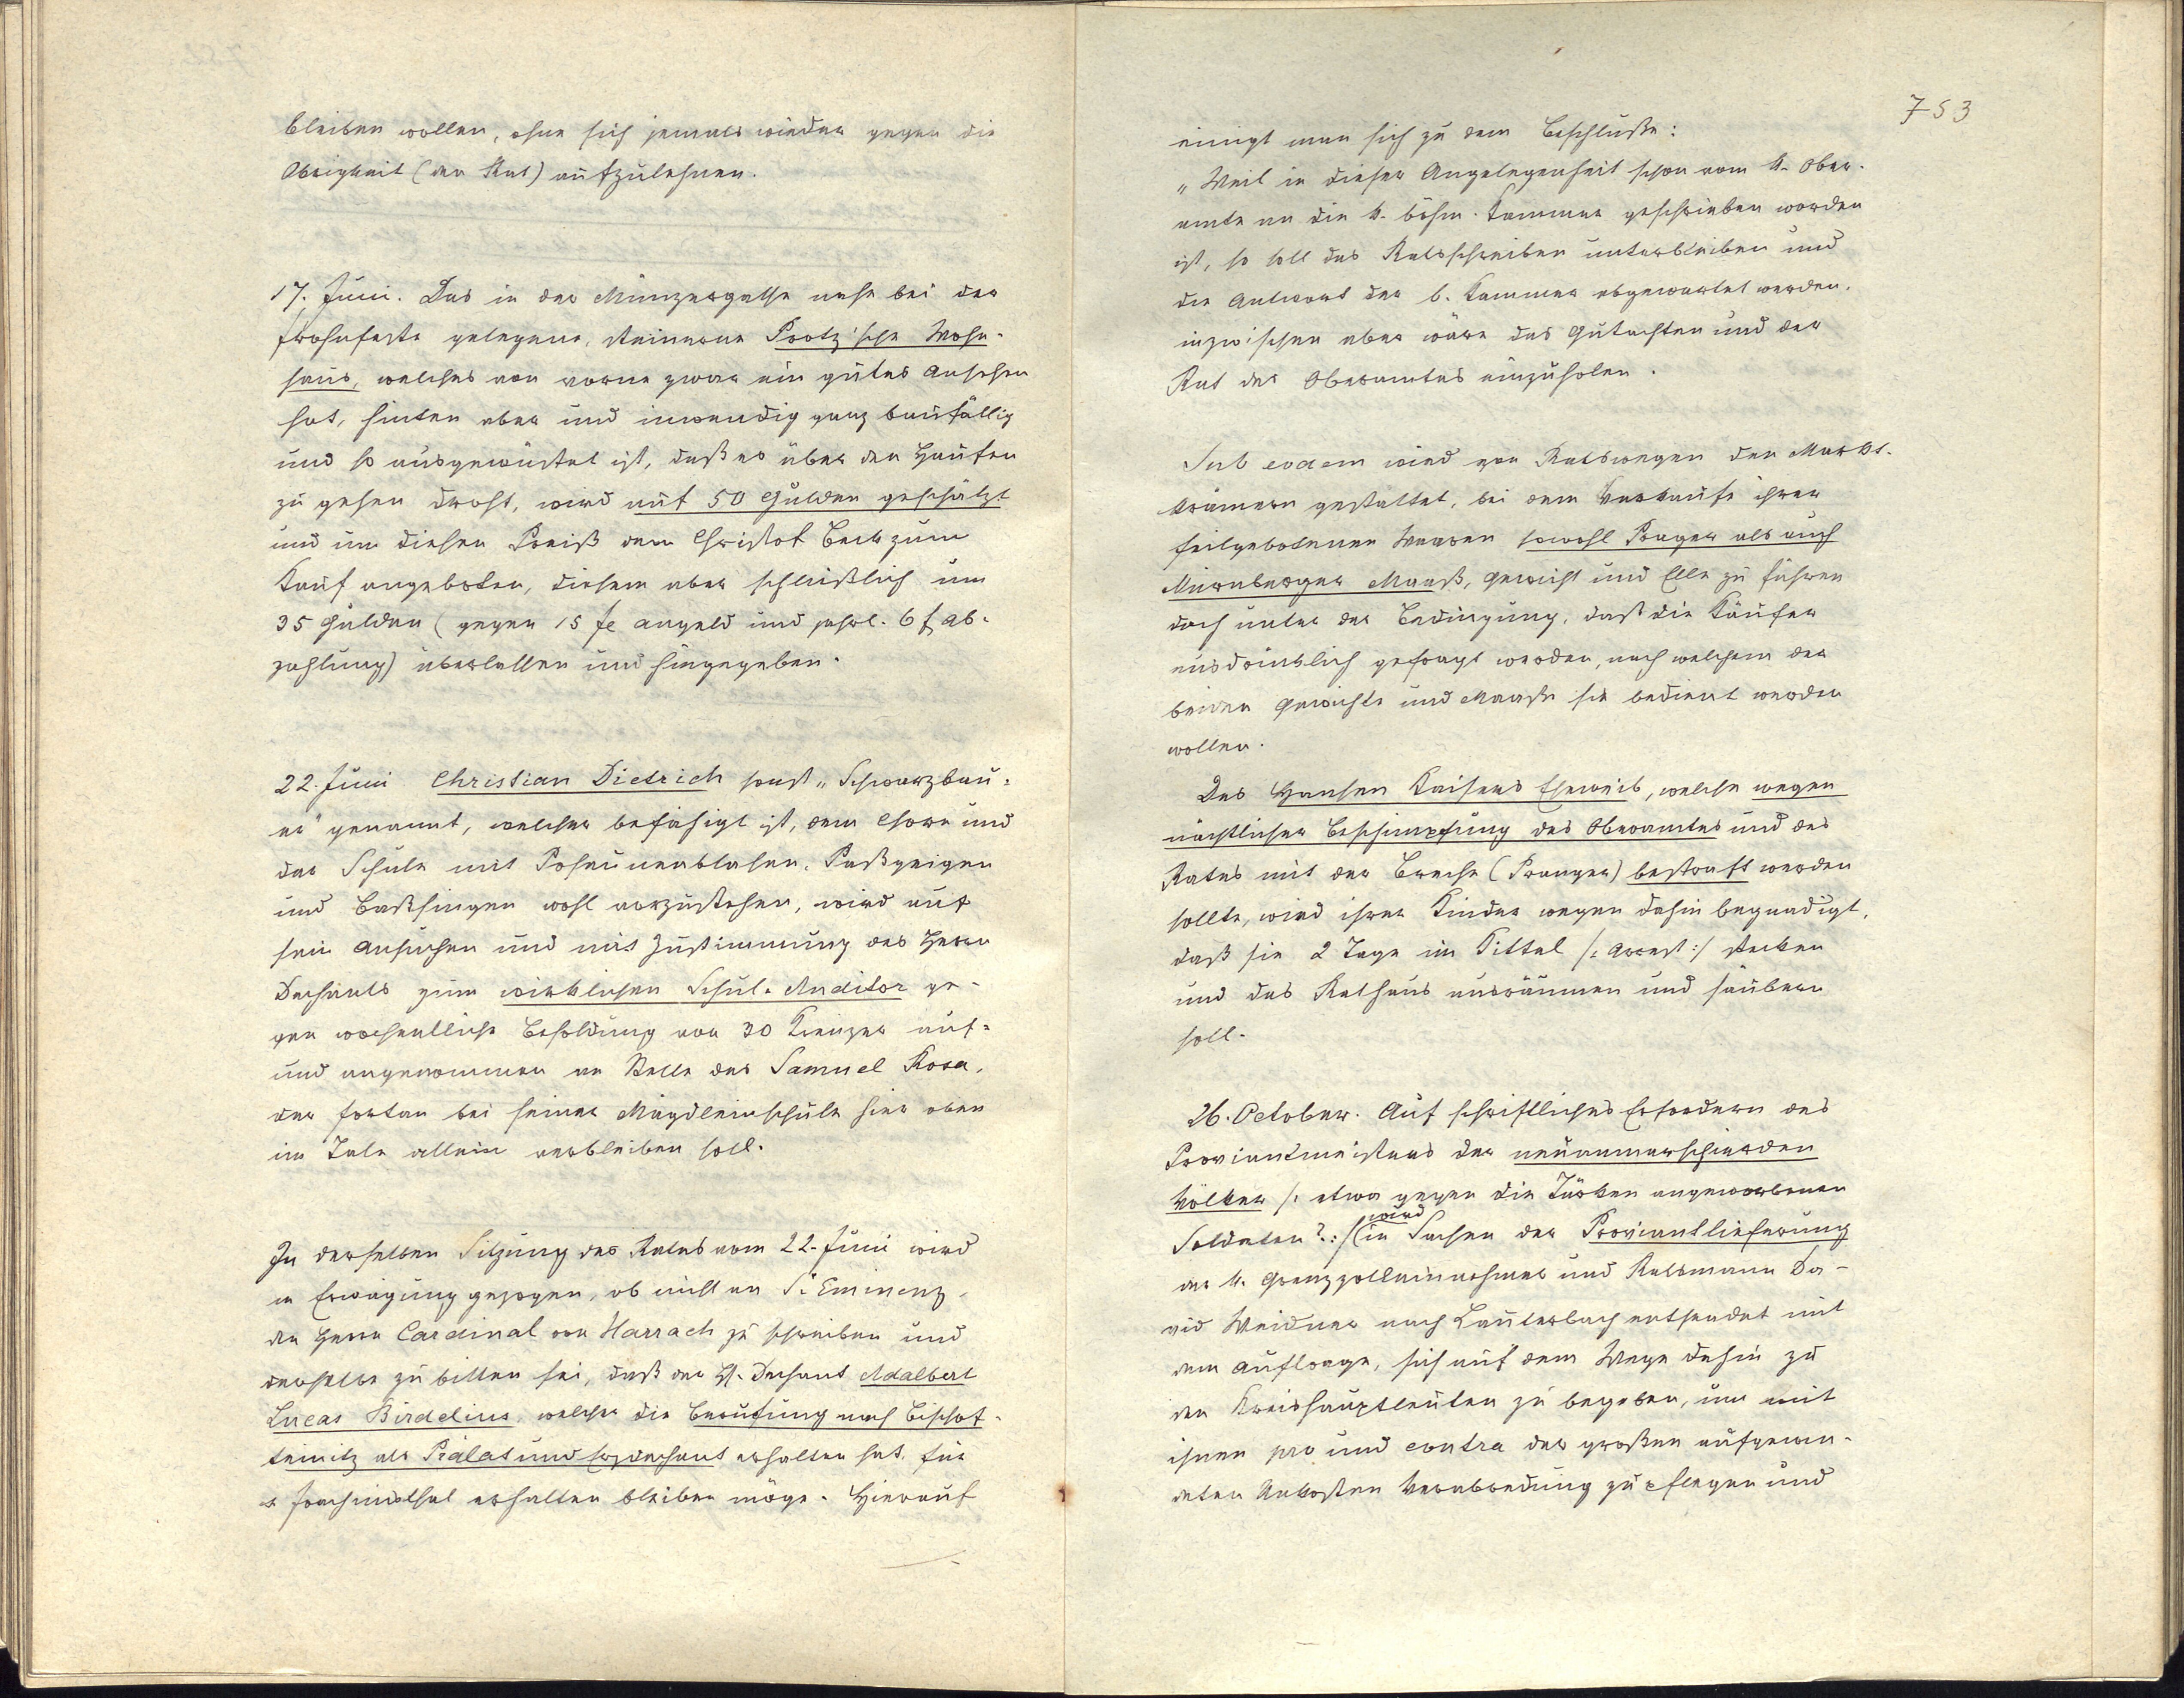 bleiben wollen, ohne sich jemals wieder gegen die
Obrigkeit (den Rat) aufzulehnen.
17. Juni. Das in der Münzergasse nahe bei der
Frohnfeste gelegene, steinerne Protz'sche Wohn-
haus, welches von vorne zwar ein gutes Ansehen
hat, hinten aber und inwendig ganz baufällig
und so ausgewüstet ist, daß es über den Haufen
zu gehen droht, wird auf 50 Gulden geschätzt
und um diesen Preiß dem Christof Beck zum
Kauf angeboten, diesem aber schließlich um
35 Gulden (gegen 15 fl Angeld und jährl. 6 f Ab-
zahlung) überlassen und hingegeben.
22. Juni Christian Dietrich sonst „Schwarzbau-
er" genannt, welcher befähigt ist, dem Chore und
der Schule mit Posaunenblasen, Paßgeigen
und Baßsingen wohl vorzustehen, wird auf
sein Ansuchen und mit Zustimmung des Herrn
Dechants zum wirklichen Schul-Auditor ge-
gen wochentliche Besoldung von 30 Kreuzer auf-
und angenommen an Stelle des Samuel Kosa,
der fortan bei seiner Mägdleinschule hier oben
im Tale allein verbleiben soll.
In derselben Sitzung des Rates vom 22. Juni wird
in Erwägung gezogen, ob nicht an Sr Eminenz,
den Herrn Cardinal von Harrach zu schreiben und
derselbe zu bitten sei, daß der H. Dechant Adalbert
Lucas Birdelius, welcher die Berufung nach Bischof-
teinitz als Prälat und Erzdechant erhalten hat, für
Joachimsthal erhalten bleiben möge. Hierauf
753
einigt man sich zu dem Beschluße:
„Weil in dieser Angelegenheit schon vom k. Ober-
amte an die k. böhm. Kammer geschrieben worden
ist, so soll das Ratsschreiben unterbleiben und
die Antwort der b. Kammer abgewartet werden.
inzwischen aber wäre das Gutachten und der
Rat des Oberamtes einzuholen.
Sub eodem wird von Ratswegen den Markt-
krämern gestattet, bei dem Verkaufe ihrer
feilgebotenen Waaren sowohl Prager als auch
Nürnberger Maaß, Gewicht und Elle zu führen
doch unter der Bedingung, daß die Käufer
ausdrücklich gefragt werden, nach welchem der
beiden Gewichte und Maaße sie bedient werden
wollen.
Des Hansen Kaisers Eheweib, welche wegen
nächtlicher Beschimpfung des Oberamtes und des
Rates mit der Breche (Pranger) bestraft werden
sollte, wird ihrer Kinder wegen dahin begnadigt,
daß sie 2 Tage im Kittel /: Arrest :/ stecken
und das Rathaus ausräumen und säubern
soll.
26. October. Auf schriftliches Erfordern des
Proviantmeisters der neuanmarschierden
Völker /: etwa gegen die Türken angeworbenen
Soldaten?:/ wird in Sachen der Proviantlieferung
der k. Grenzzolleinnehmer und Ratsmann Da-
vid Weidner nach Lauterbach entsendet mit
dem Auftrage, sich auf dem Wege dahin zu
den Kreishauptleuten zu begeben, um mit
ihnen pro und contra der großen aufgewen-
deten Unkosten Verabredung zu pflegen und